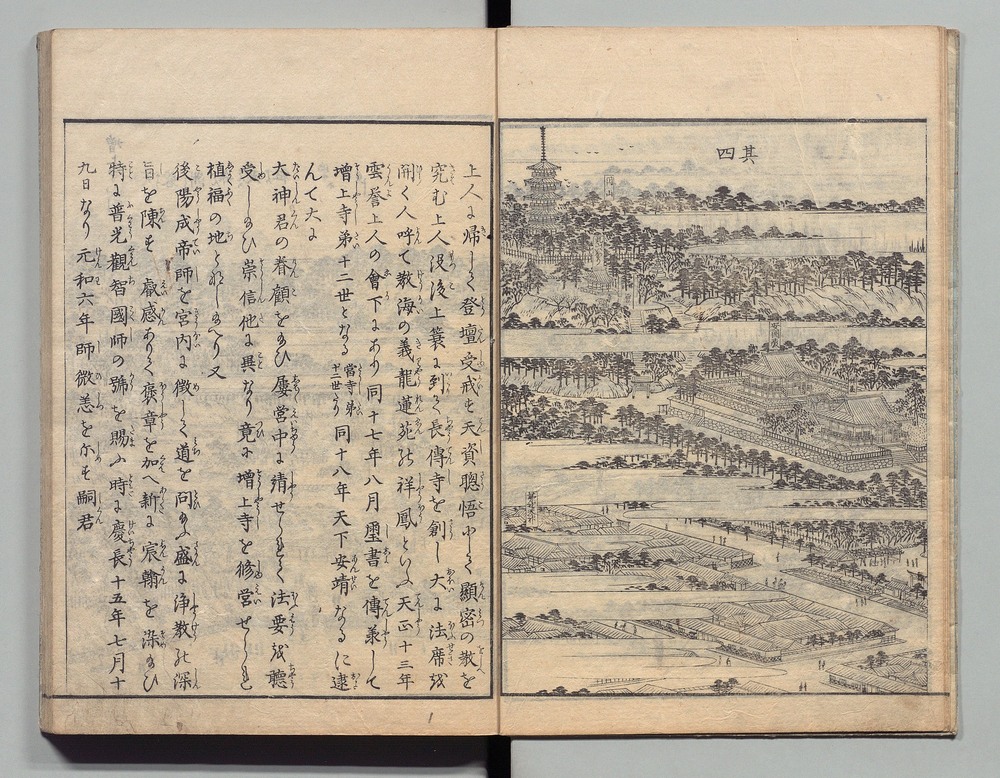 其四
上人に帰して登壇受戒す天資聡悟にして顕密の教を
究む上人没後上簑に到て長傳寺を創し大に法席を
開く人呼て教海の義龍蓮苑の祥鳳といふ天正十三年
雲誉上人の會下にあり同十七年八月璽書を傳承して
増上寺第十二世となる 當寺第十二世なり 同十八年天下安靖なるに逮
んて大に
大神君の眷顧をかうむり屡営中に請せられて法要を聴
受し給ひ崇信他に異なり竟に増上寺を修営せられ
植福の地となし給へり又
後陽成帝師を宮内に徴して道を問給ふ盛に浄教の深
旨を陳す 叡感ありて褒章を加へ新に宸翰を染給ひ
特に普光觀智國師の號を賜ふ時に慶長十五年七月十
九日なり 元和六年師微恙を示す嗣君